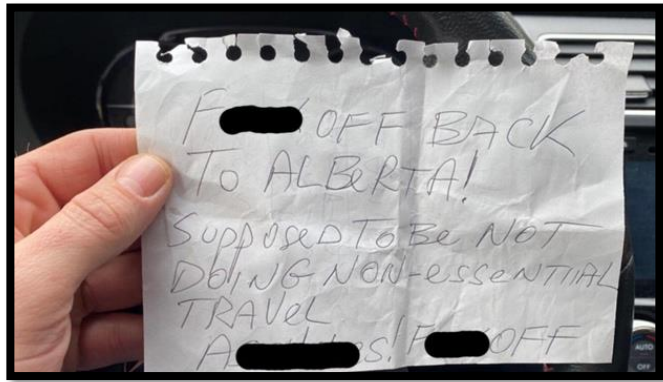 F OFF BACK
TO ALBERTA!
SUPPOSED TO BE NOT
DOING NON-ESSENTIAL
TRAVEL
A S! F OFF
AUTO
OFF